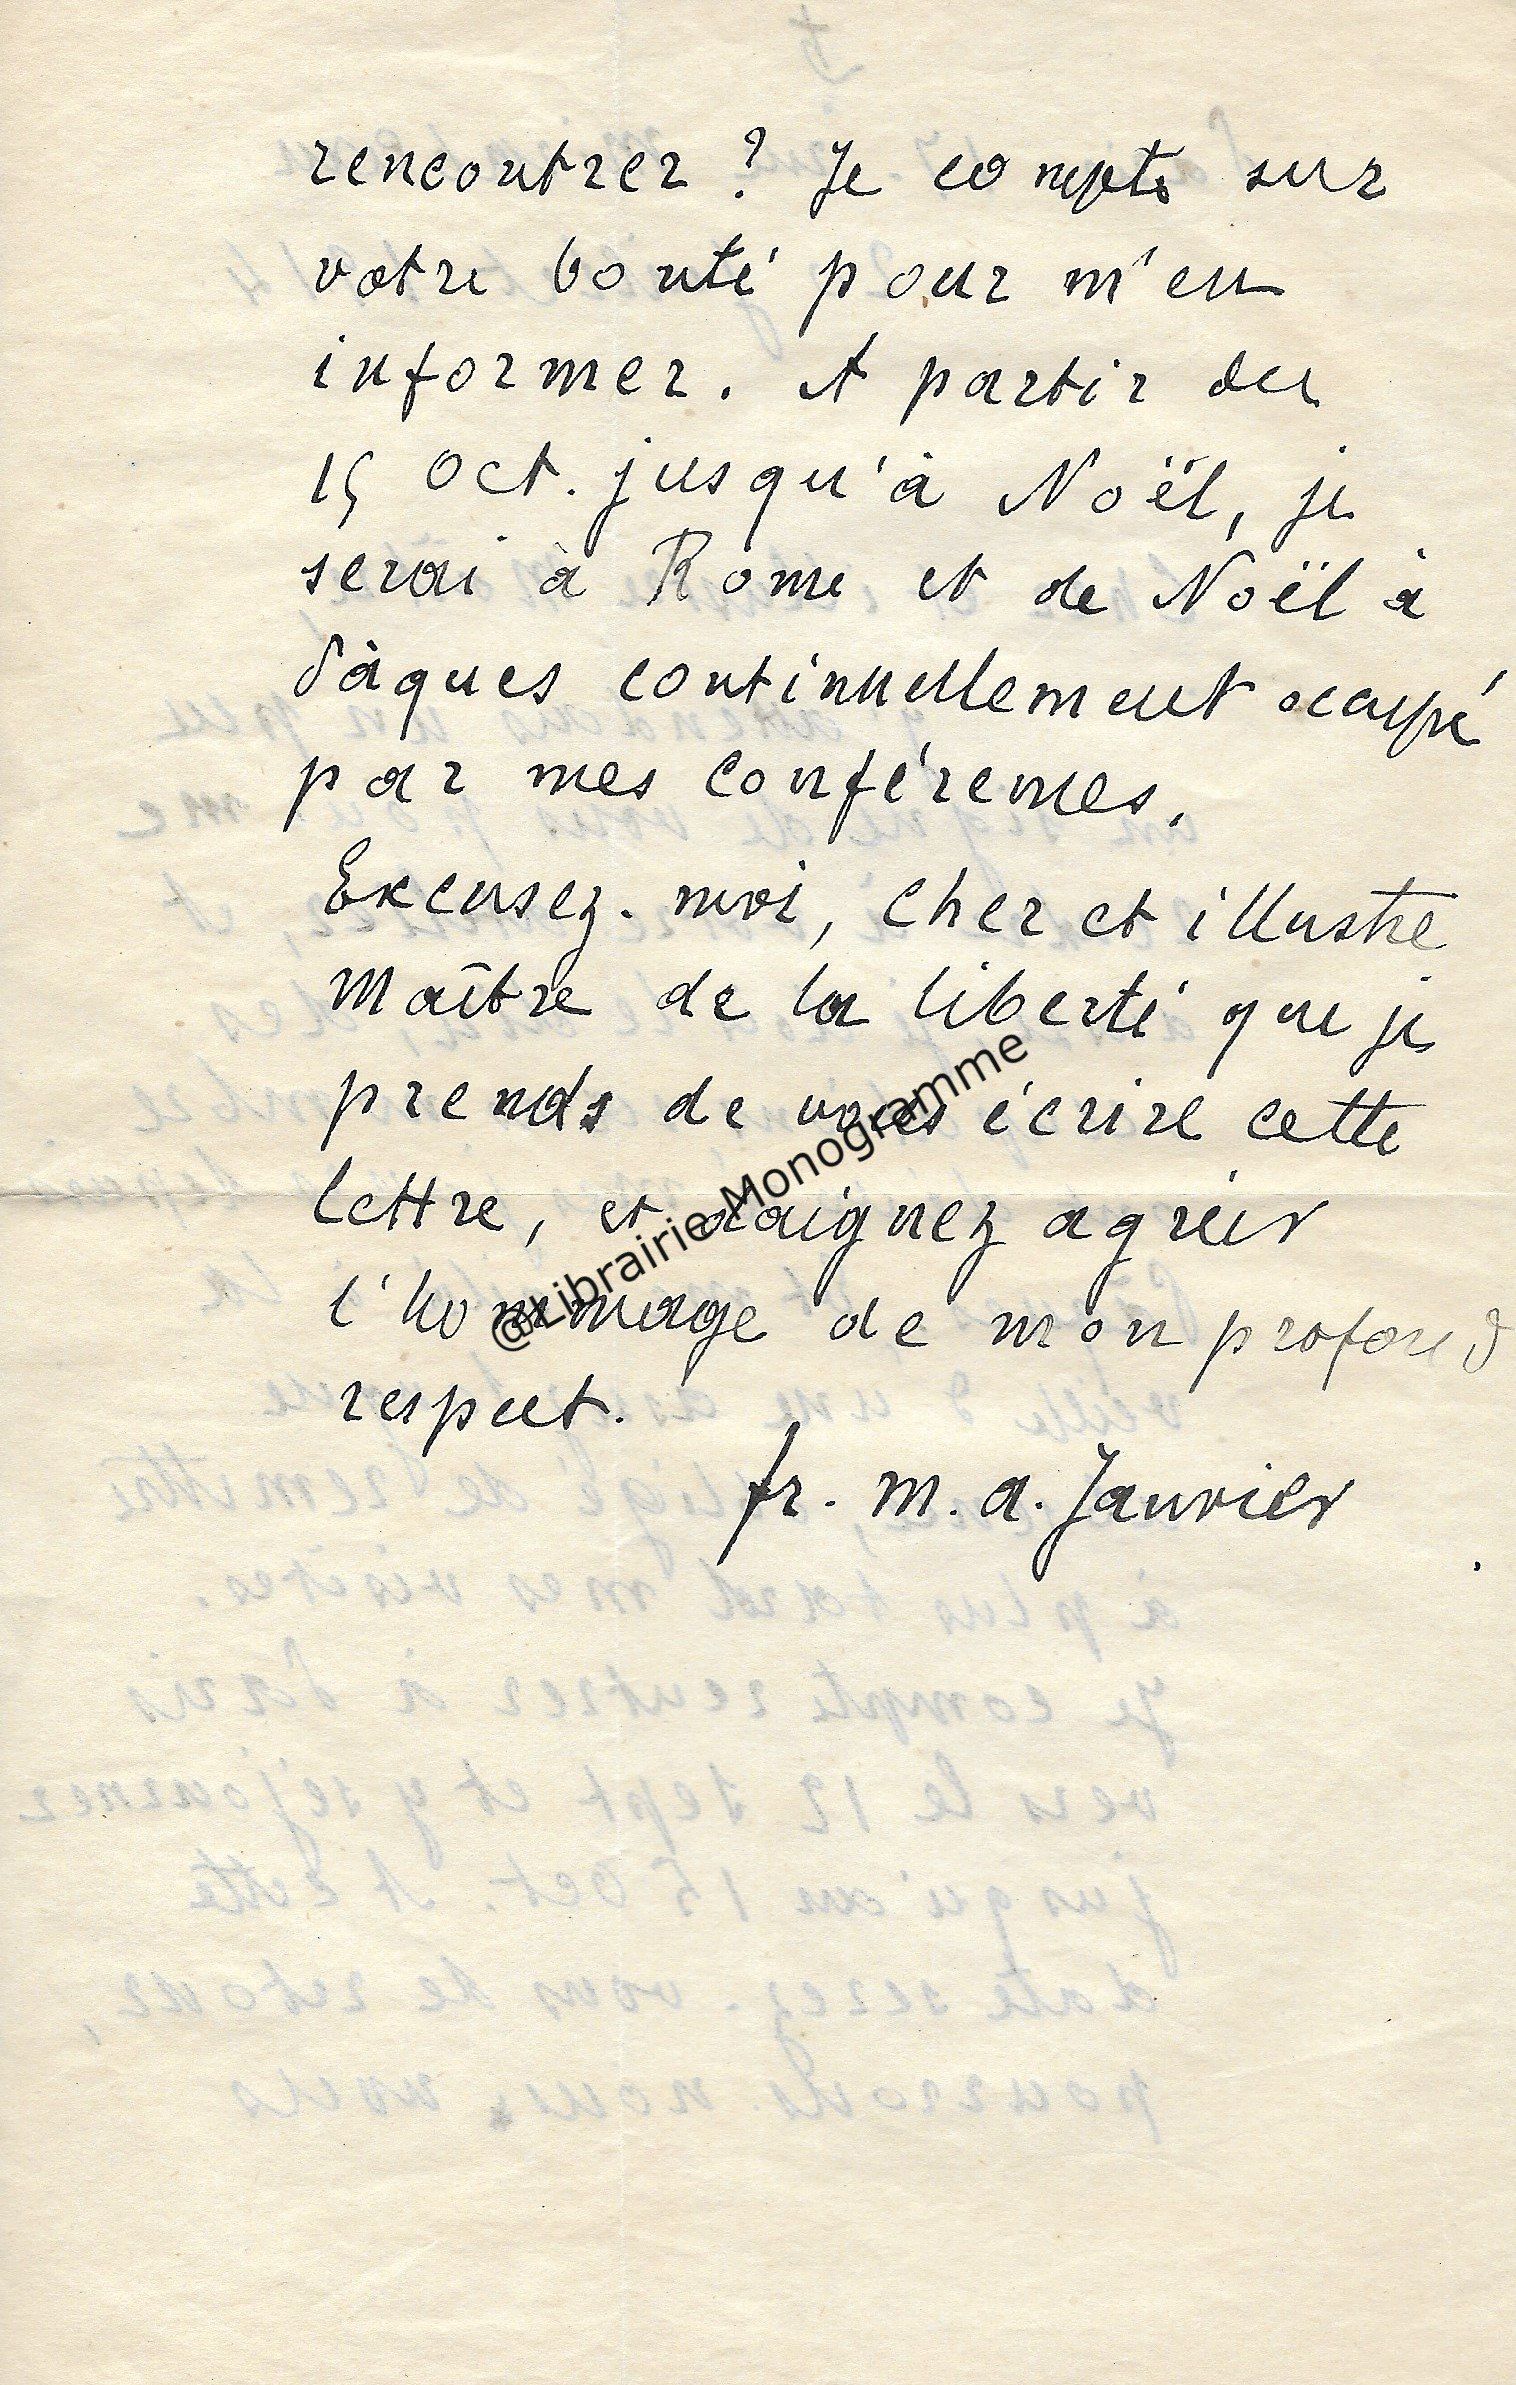 rencontrer ? Je compte sur
votre bonté pour m'en
informer. A partir du
15 oct. jusqu'à Noël, je
serai à Rome et de Noël à
Pâques continuellement occupé
par mes conférences.
Excusez-moi, cher et illustre
Maître de la liberté que je
prends de vous écrire cette
lettre, et daignez agréer
l'hommage de mon profond
respect.
fr. m. a. Janvier
@Librairie Monogramme